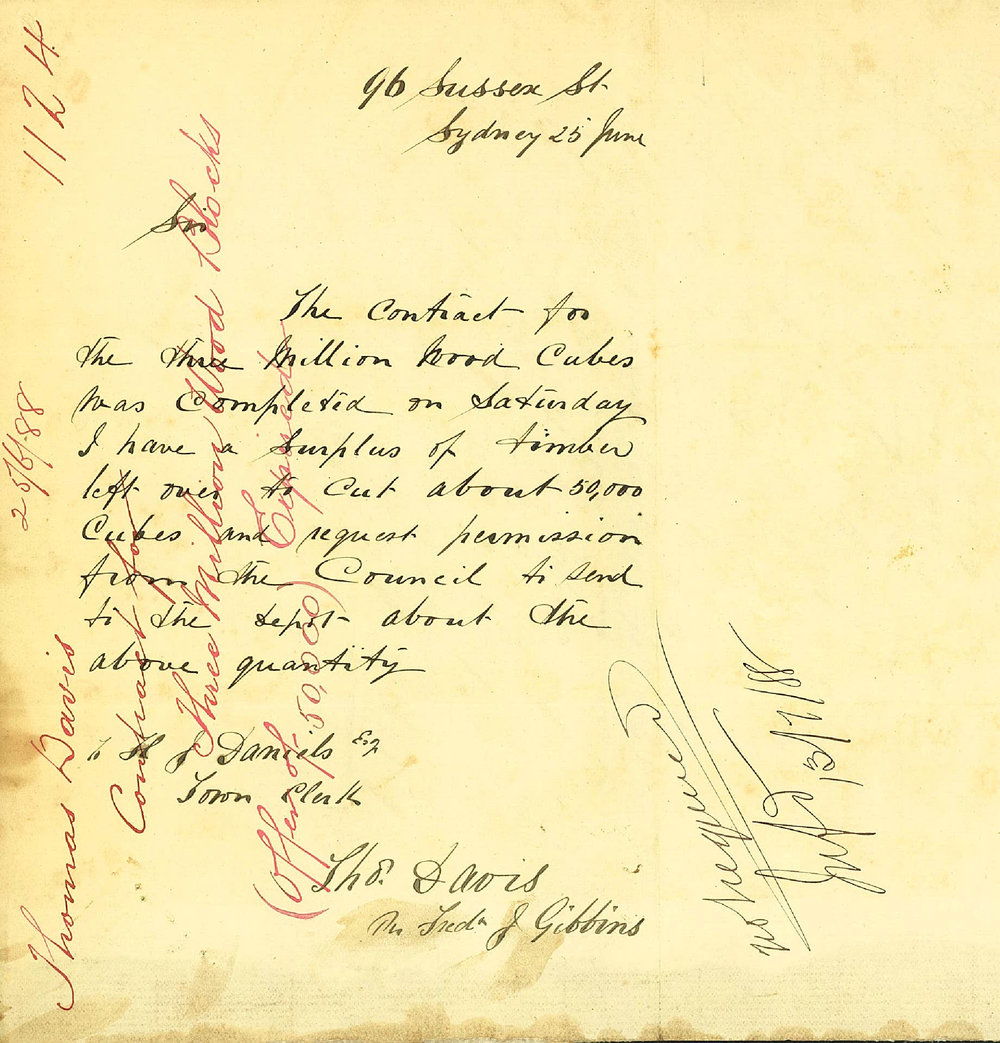 96 Sussex St
Sydney 25 June
Sir
The Contract for
the three Million Wood Cubes
was Completed on Saturday
I have a Surplus of timber
left over to Cut about 50,000
Cubes and request permission
from the Council to send
to the depot about the
above quantity
To H J Daniels Esq
Town Clerk
Thos. Davis
Per Fredk J Gibbins
1124
25/6/88
Thomas Davis
Contract for
Three Million Wood Blocks
(Offer of 50,000) Expired
not required
13/7/88